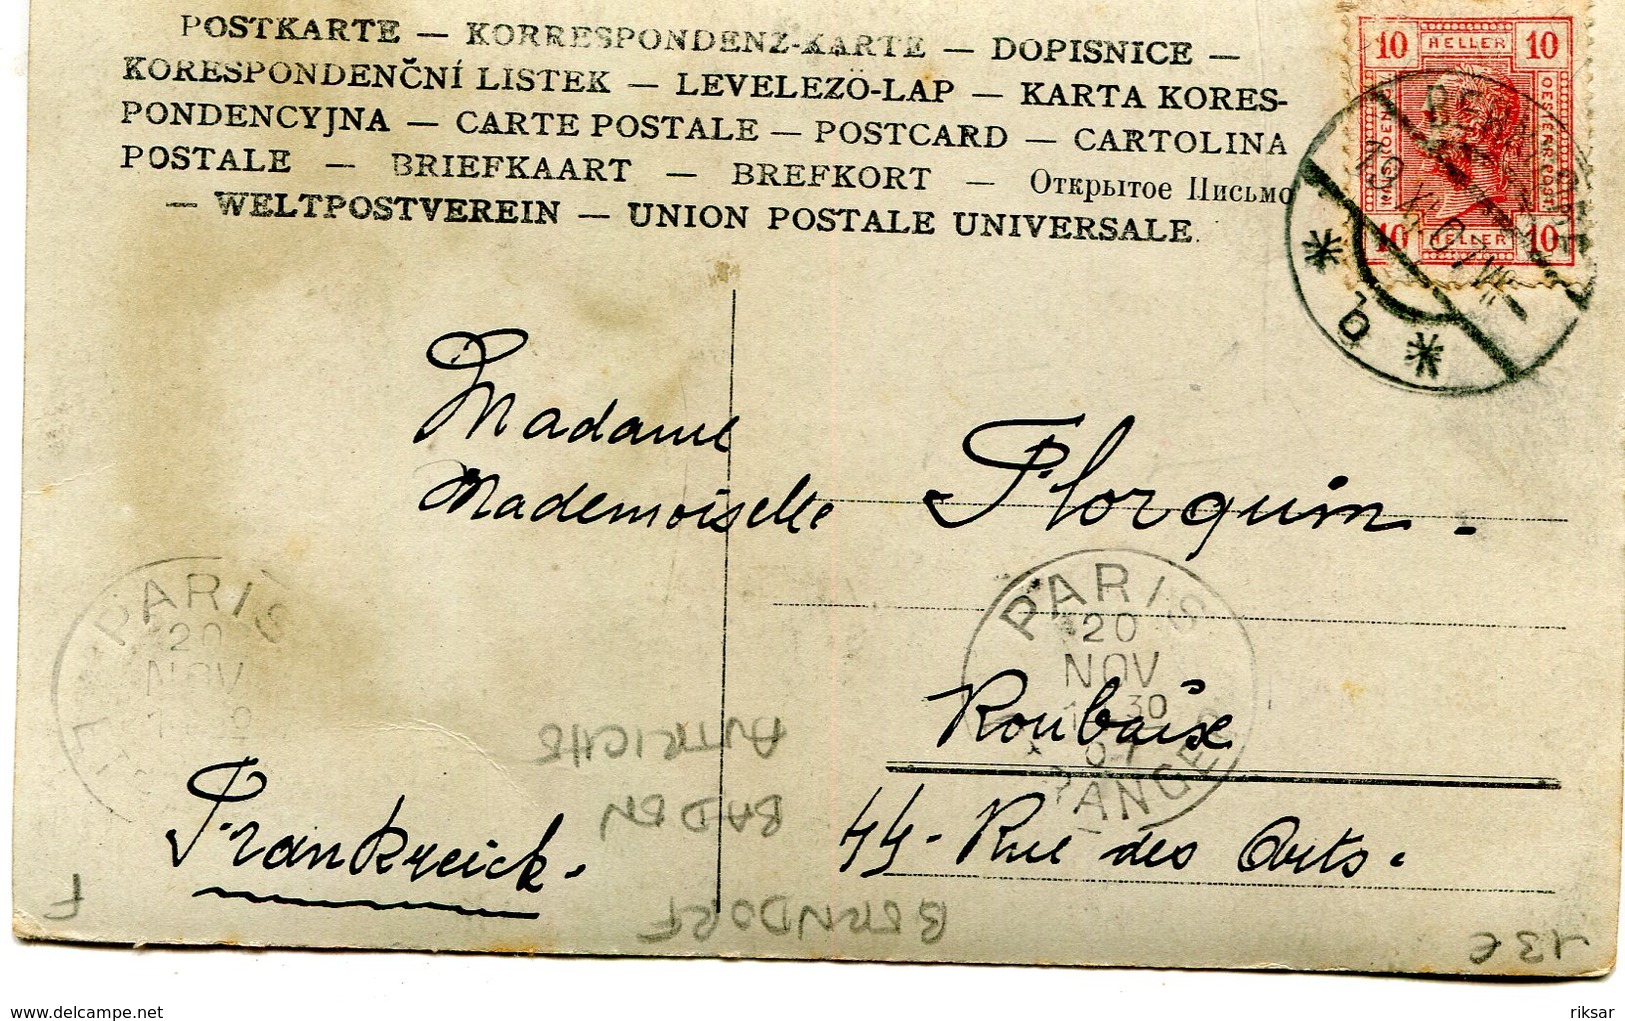 POSTKARTE — KORRESPONDENZ-KARTE — DOPISNICE —
KORESPONDENČNÍ LISTEK — LEVELEZÖ-LAP — KARTA KORES-
PONDENCYJNA — CARTE POSTALE — POSTCARD — CARTOLINA
POSTALE — BRIEFKAART — BREFKORT — Открытое Письмо
— WELTPOSTVEREIN — UNION POSTALE UNIVERSALE
10 HELLER 10
10 HELLER 10
b
Madame
Mademoiselle Florquin.
PARIS
20
NOV
PARIS
20
NOV
30
07
ETRANGER
Roubaix
AUTRICHE
BADEN
44 - Rue des Arts.
Frankreich.
BERNDORF
F
13€
riksar